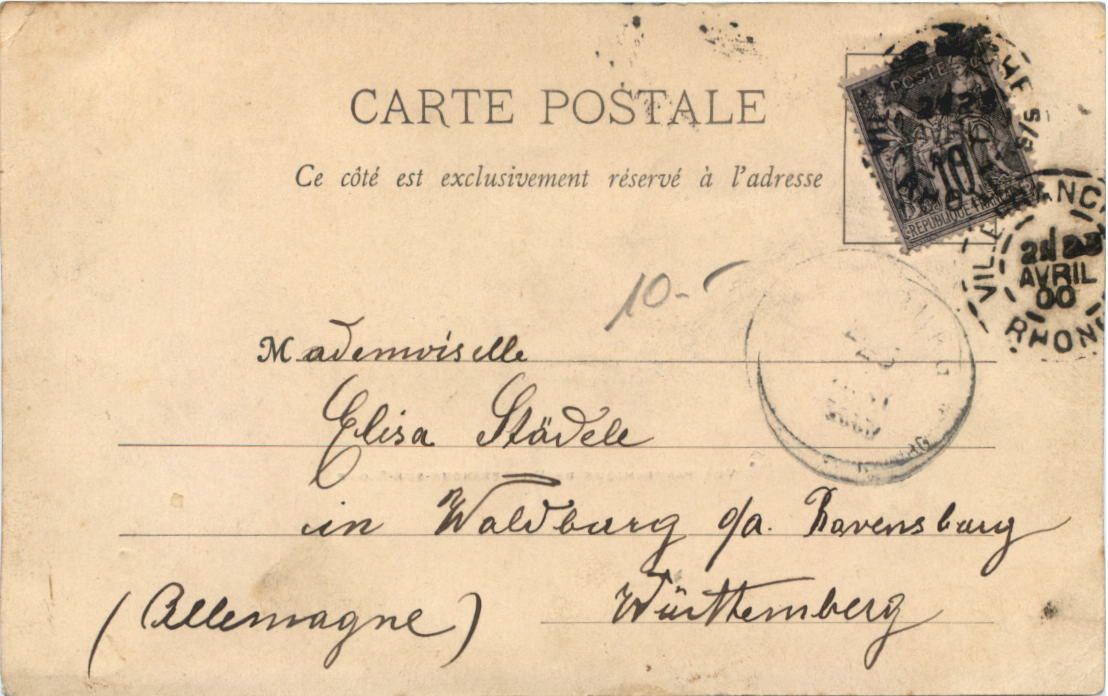 CARTE POSTALE
Ce côté est exclusivement réservé à l'adresse
POSTES
10
REPUBLIQUE FRANÇAISE
S/S
RHONE
AVRIL
00
RHONE
10-
Mademoiselle
Elisa Städele
in Waldburg o/a. Ravensburg
Württemberg
(Allemagne)